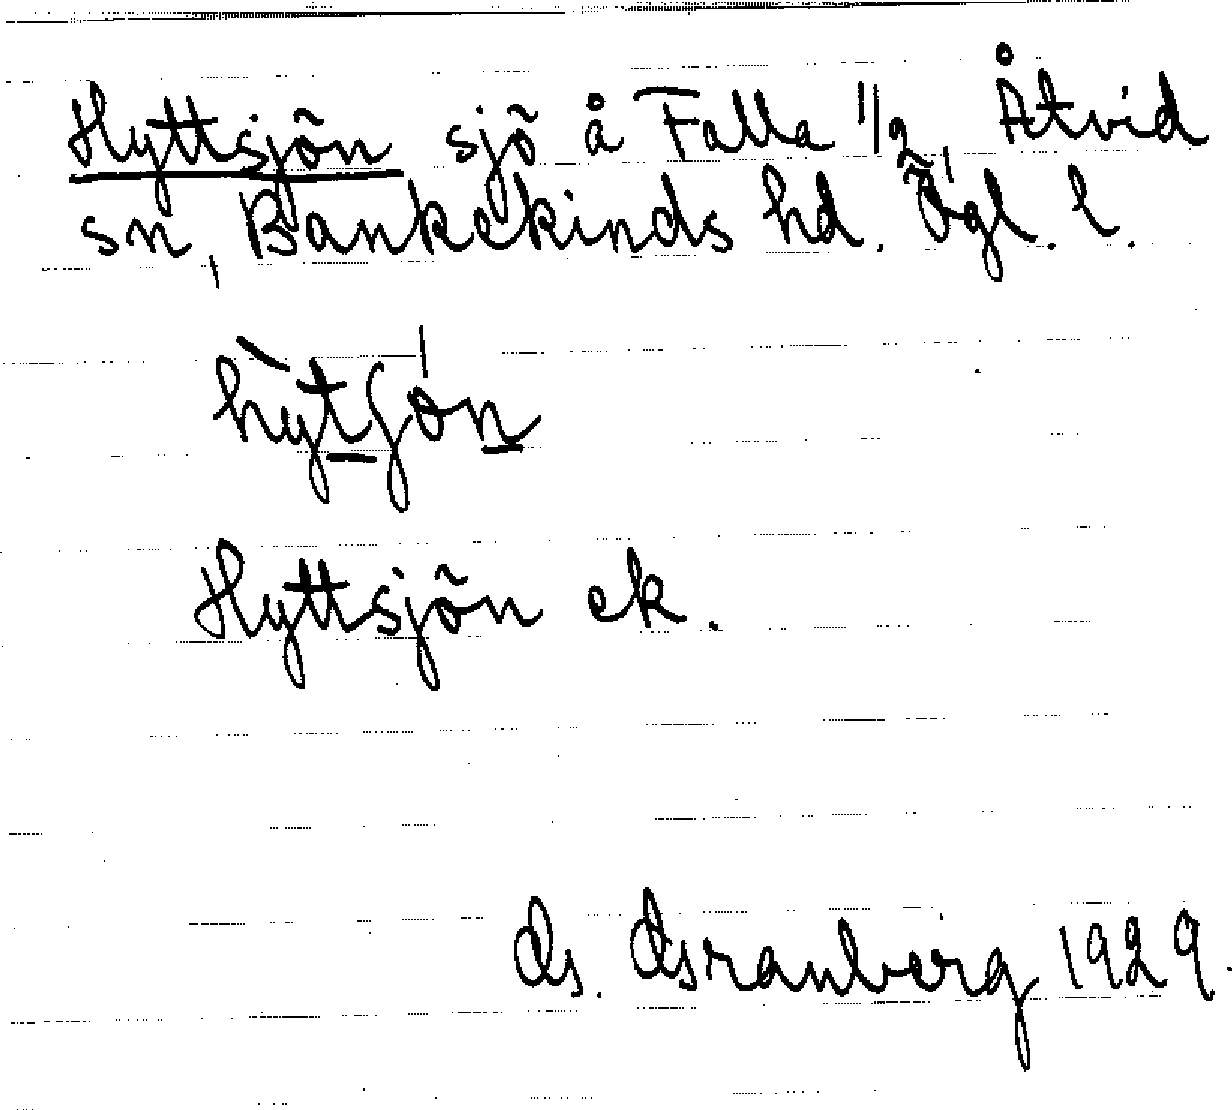 Hyttsjön sjö å Falla 1/2 Åtvid
sn, Bankekinds hd. Ögl. l.
Hyttsjön ek.
G. Granberg 1929.